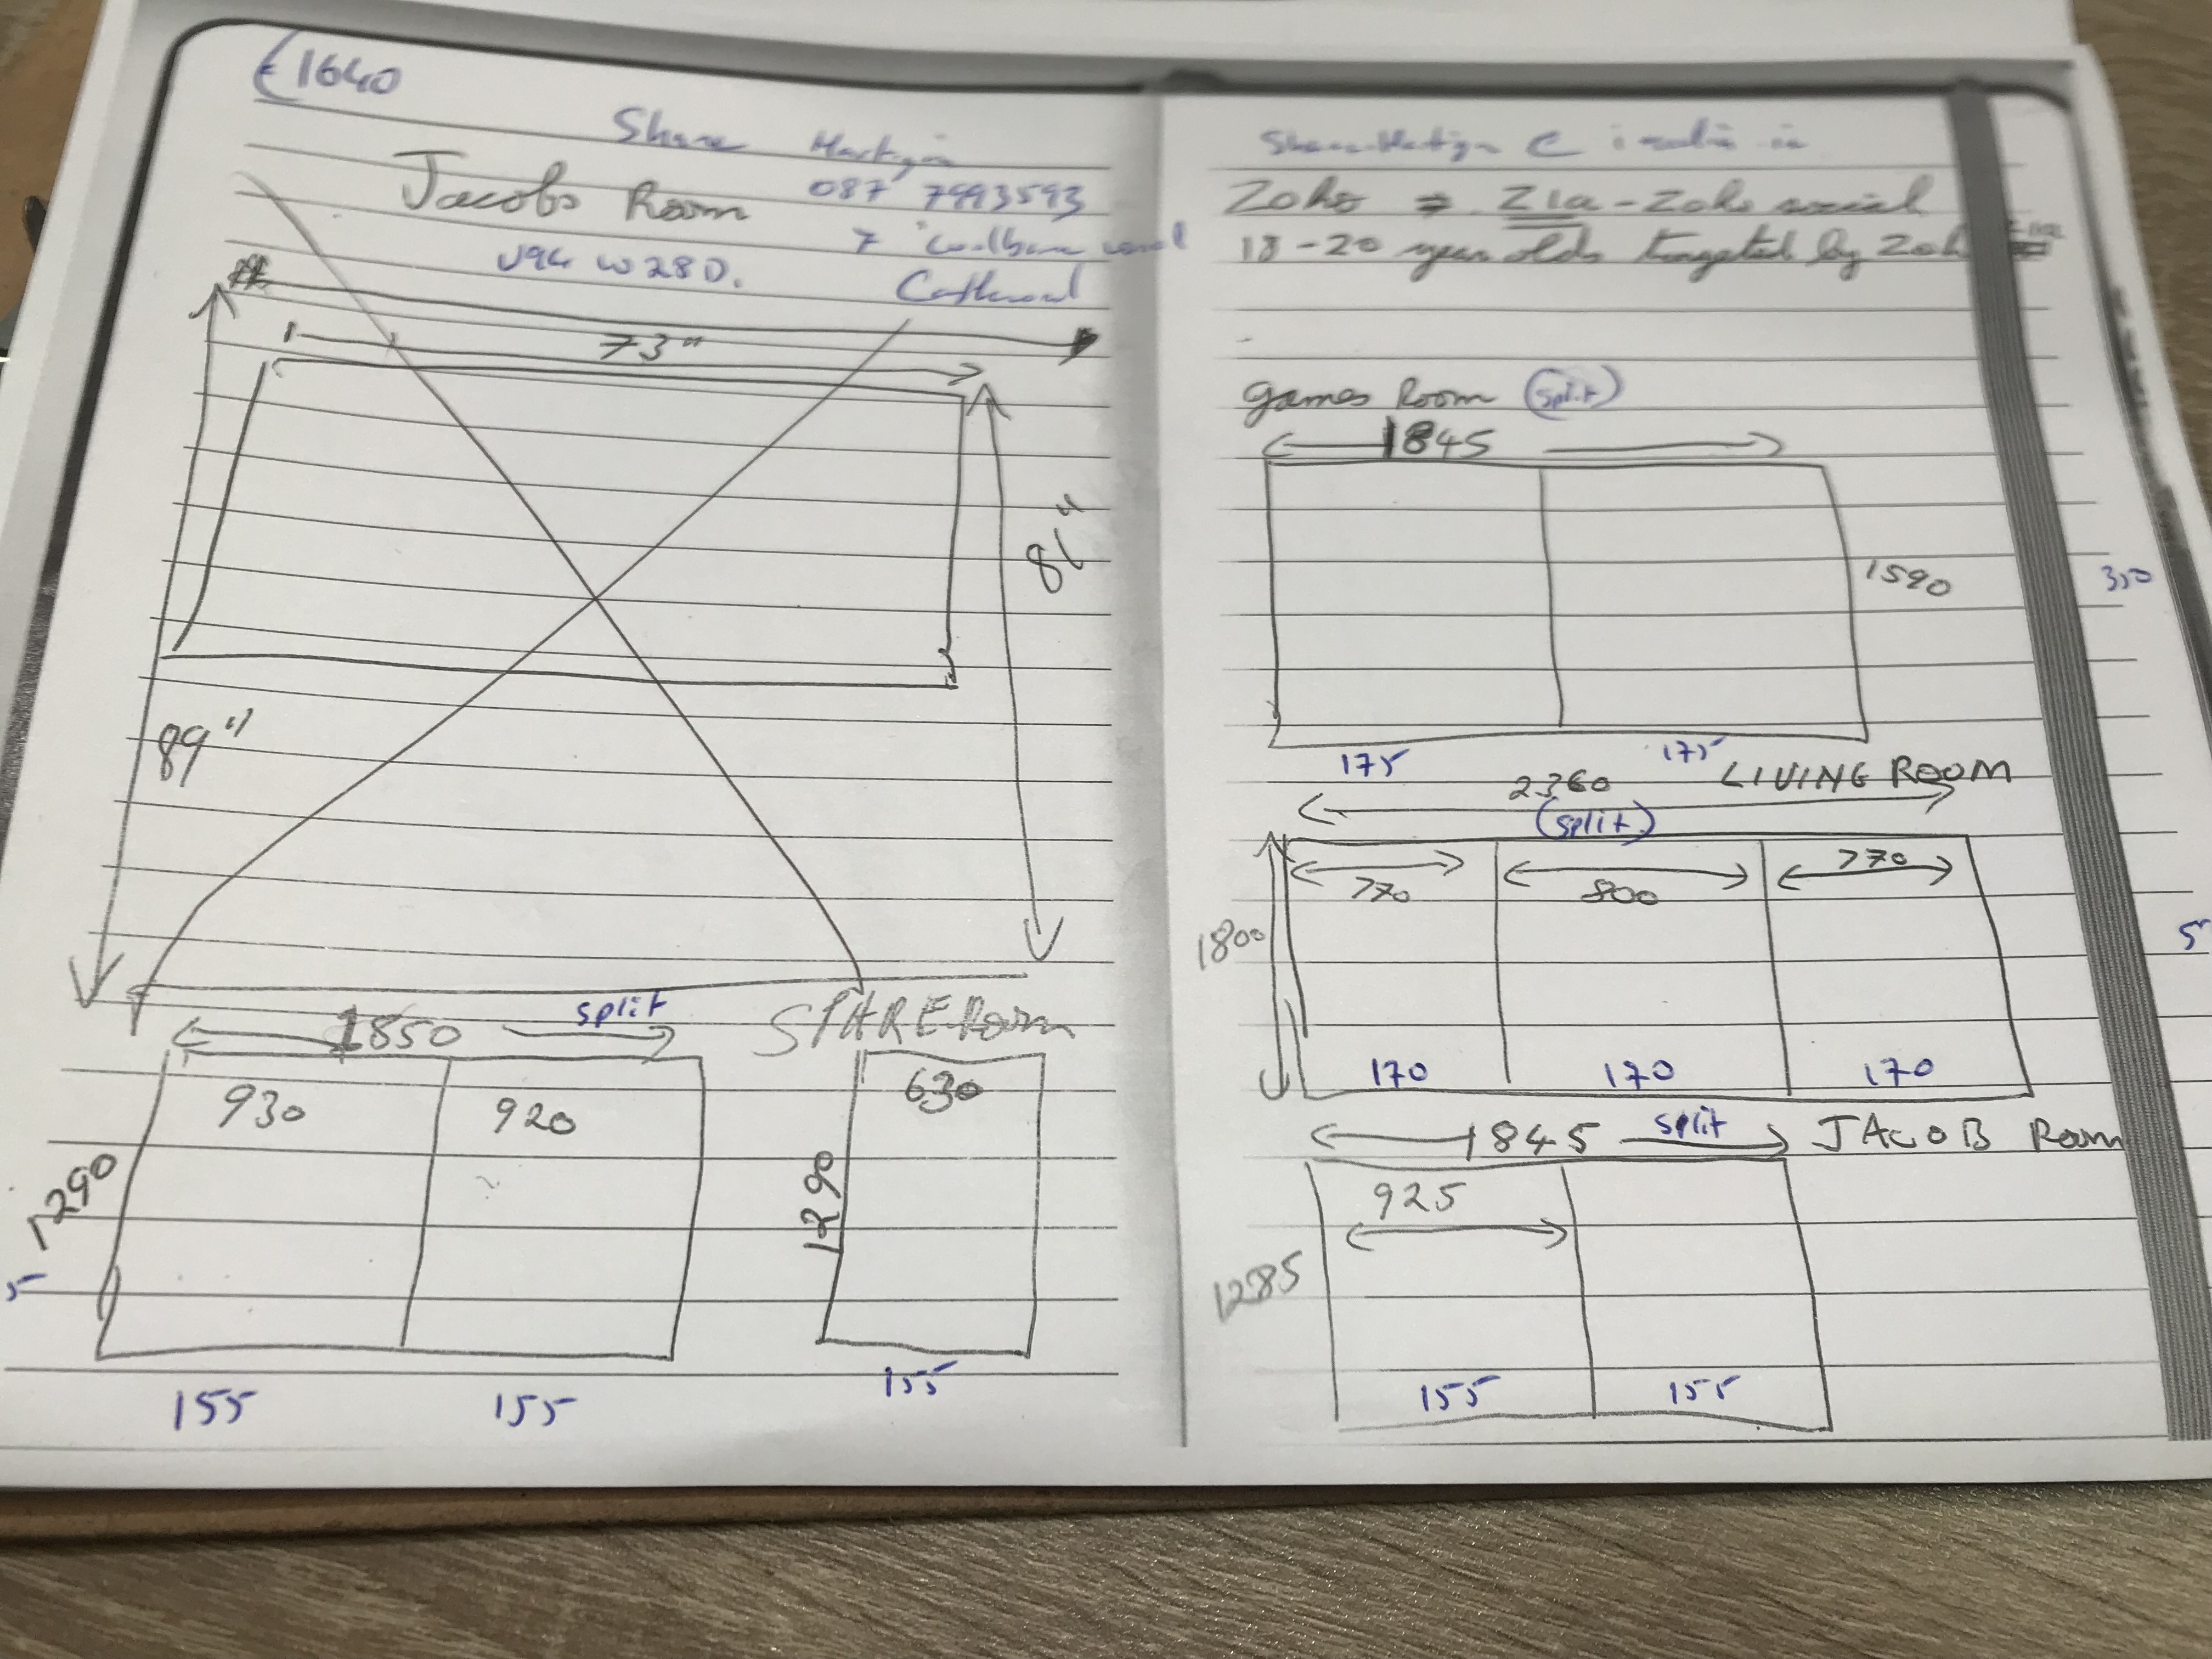 €1640
Shane
Jacobs Room 087 7993593
7
W28D.
73"
81"
89"
1850 split
SPARE Room
930 920
630
1290
1290
155 155 155
Zoho Zia - Zoho social
18-20 year olds targeted by Zoho
Games Room (split)
1845
1590
350
175 175
LIVING ROOM
2360
(split)
770 800 770
1800
170 170 170
1845 split JACOB Room
925
1285
155 155